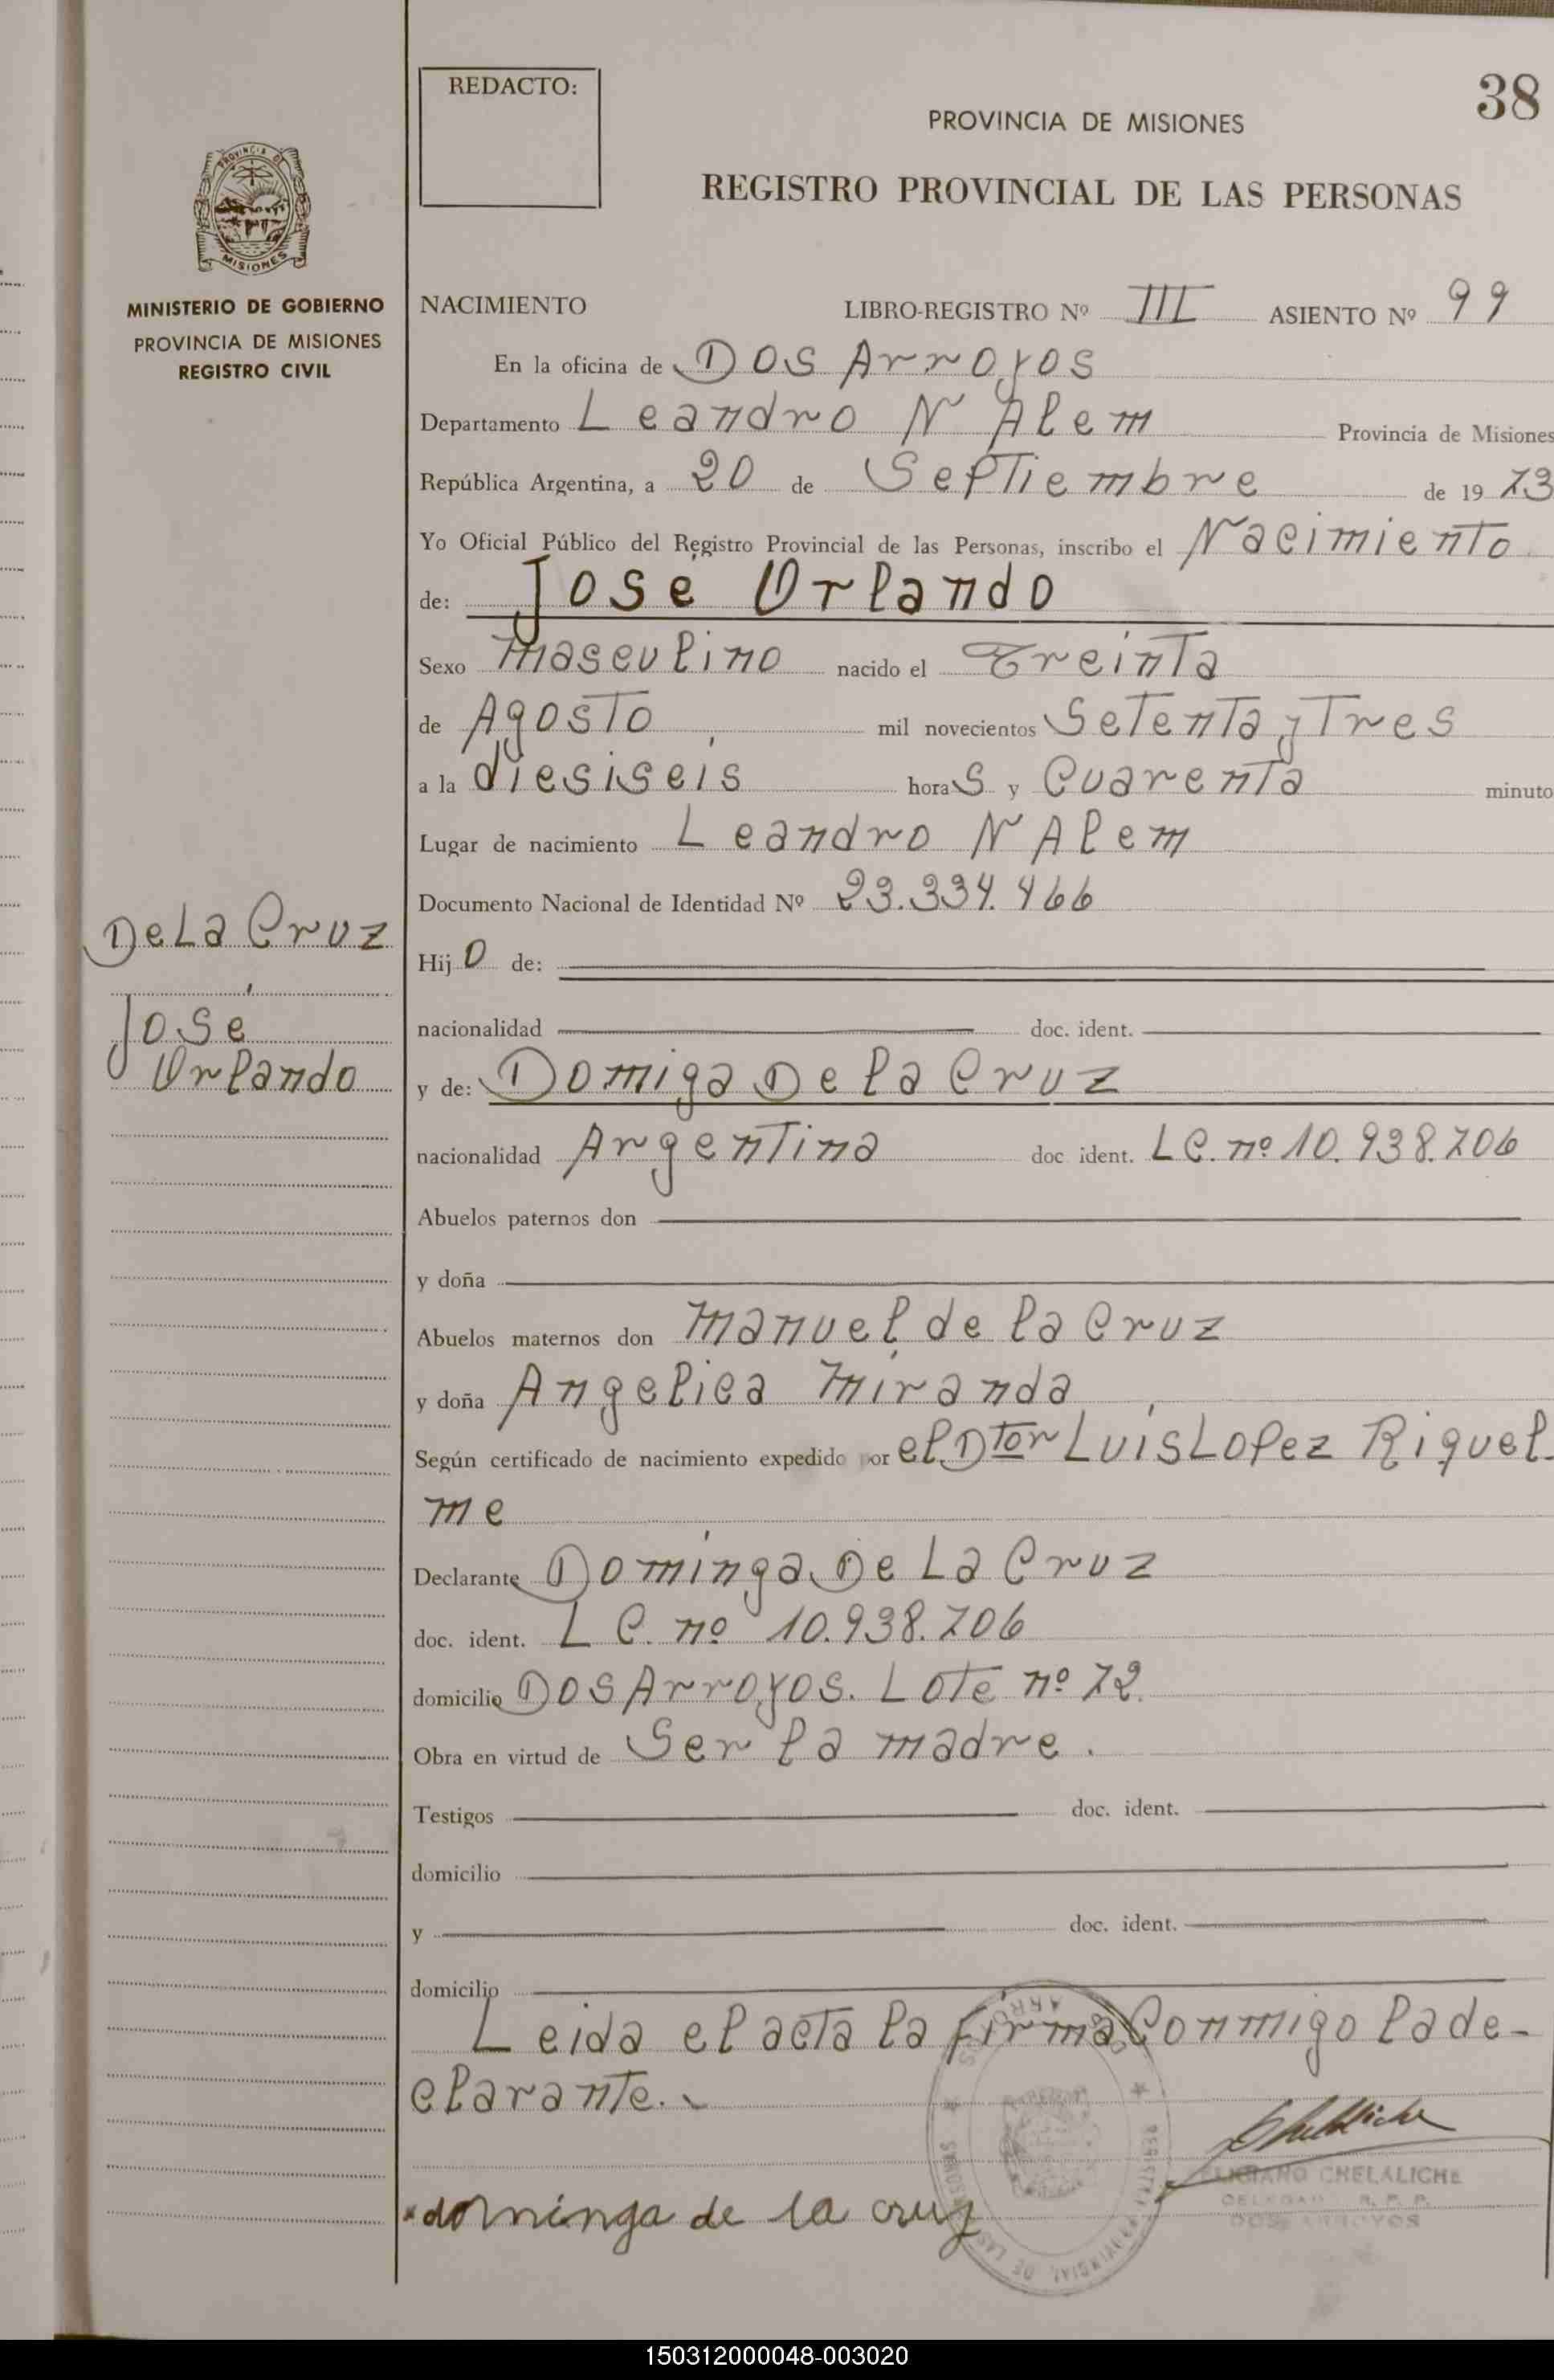 38
REDACTO:
PROVINCIA DE MISIONES
REGISTRO PROVINCIAL DE LAS PERSONAS
PROVINCIA DE
MISIONES
MINISTERIO DE GOBIERNO
PROVINCIA DE MISIONES
REGISTRO CIVIL
NACIMIENTO LIBRO-REGISTRO Nº III ASIENTO Nº 99
En la oficina de Dos Arroyos
Departamento Leandro N Alem Provincia de Misiones
República Argentina, a 20 de Septiembre de 19 73
Yo Oficial Público del Registro Provincial de las Personas, inscribo el Nacimiento
de: José Orlando
Sexo Masculino nacido el Treinta
de Agosto mil novecientos Setenta y Tres
a la diesiseis hora S y Cuarenta minuto
Lugar de nacimiento Leandro N Alem
Documento Nacional de Identidad Nº 23.334.466
De La Cruz
José
Orlando
Hij o de:
nacionalidad doc. ident.
y de: Domiga De la Cruz
nacionalidad Argentina doc ident. LC. nº 10.938.706
Abuelos paternos don
y doña
Abuelos maternos don Manuel de la Cruz
y doña Angelica Miranda
Según certificado de nacimiento expedido por el Dtor Luis Lopez Riquel-
me
Declarante Dominga De La Cruz
doc. ident. L C. nº 10.938.706
domicilio Dos Arroyos. Lote nº 72.
Obra en virtud de Ser la madre.
Testigos doc. ident.
domicilio
y doc. ident.
domicilio
Leida el acta la firma Conmigo la de-
clarante.
CHELALICHE
R. P. P.
DOS ARROYOS
dominga de la cruz
150312000048-003020